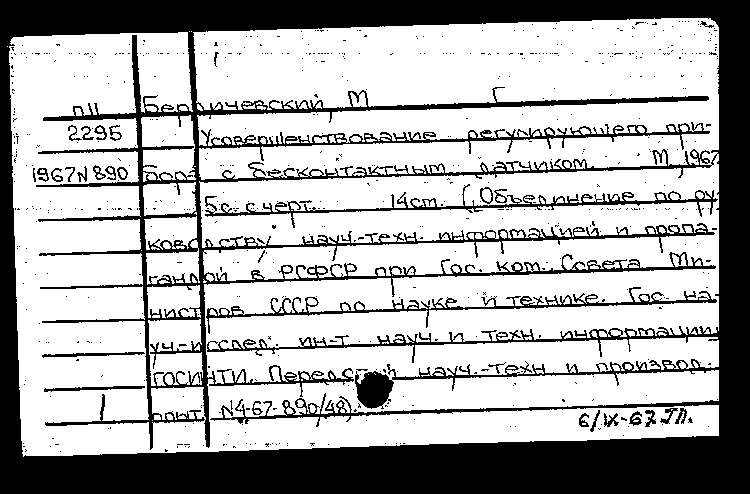 П11 Бердичевский, М Г
2295 Усовершенствование регулирующего при-
1967 N 890 бора с бесконтактным датчиком. М, 1967
5 с. с черт. 14 см. (Объединение по ру-
ководству науч.-техн. информацией и пропа-
гандой в РСФСР при Гос. ком. Совета Ми-
нистров СССР по науке и технике. Гос. на-
уч.-исслед. ин-т науч. и техн. информации
ГОСИНТИ. Передовой науч.-техн и производ.
1 опыт. N4-67-890/48).
6/IX-67 ГЛ.